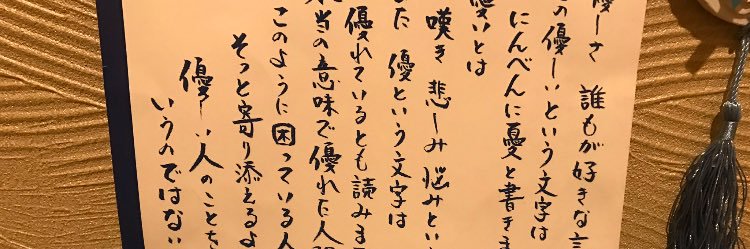 優しさ 誰もが好きな言
の優しいという文字は
にんべんに憂と書きま
憂いとは
嘆き 悲しみ 悩みとい
た 優という文字は
優れているとも読みま
当の意味で優れた人間
このように困っている人
そっと寄り添えるよ
優しい人のことを
いうのではない